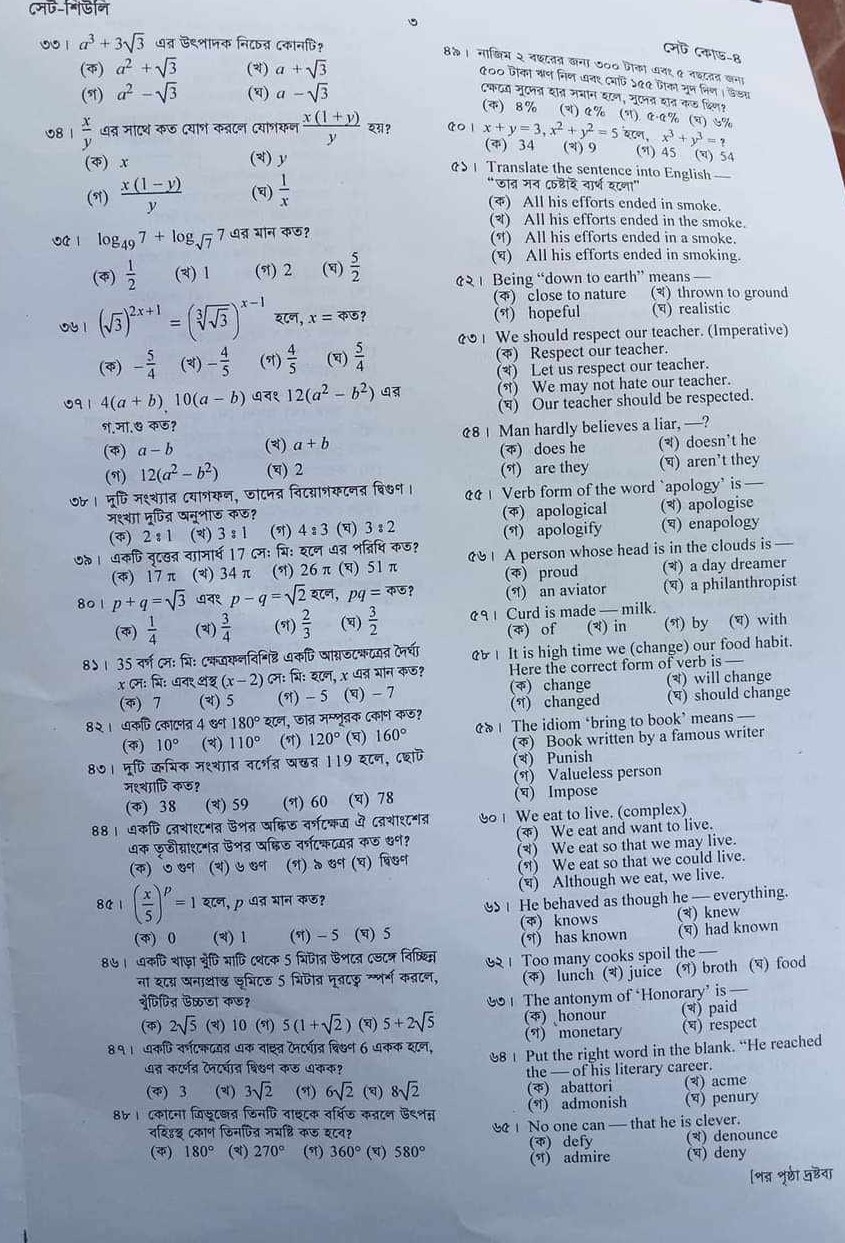 সেট-শিউলি
৩
সেট কোড-৪
৩৩। a³ + 3√3 এর উৎপাদক নিচের কোনটি?
(ক) a² + √3 (খ) a + √3
(গ) a² − √3 (ঘ) a − √3
৩৪। x/y এর সাথে কত যোগ করলে যোগফল x(1 + y)/y হয়?
(ক) x (খ) y
(গ) x(1 − y)/y (ঘ) 1/x
৩৫। log₄₉ 7 + log_√7 7 এর মান কত?
(ক) 1/2 (খ) 1 (গ) 2 (ঘ) 5/2
৩৬। (√3)^(2x+1) = (∛√3)^(x−1) হলে, x = কত?
(ক) −5/4 (খ) −4/5 (গ) 4/5 (ঘ) 5/4
৩৭। 4(a + b), 10(a − b) এবং 12(a² − b²) এর
গ.সা.গু কত?
(ক) a − b (খ) a + b
(গ) 12(a² − b²) (ঘ) 2
৩৮। দুটি সংখ্যার যোগফল, তাদের বিয়োগফলের দ্বিগুণ।
সংখ্যা দুটির অনুপাত কত?
(ক) 2 ঃ 1 (খ) 3 ঃ 1 (গ) 4 ঃ 3 (ঘ) 3 ঃ 2
৩৯। একটি বৃত্তের ব্যাসার্ধ 17 সেঃ মিঃ হলে এর পরিধি কত?
(ক) 17 π (খ) 34 π (গ) 26 π (ঘ) 51 π
৪০। p + q = √3 এবং p − q = √2 হলে, pq = কত?
(ক) 1/4 (খ) 3/4 (গ) 2/3 (ঘ) 3/2
৪১। 35 বর্গ সেঃ মিঃ ক্ষেত্রফলবিশিষ্ট একটি আয়তক্ষেত্রের দৈর্ঘ্য
x সেঃ মিঃ এবং প্রস্থ (x − 2) সেঃ মিঃ হলে, x এর মান কত?
(ক) 7 (খ) 5 (গ) − 5 (ঘ) − 7
৪২। একটি কোণের 4 গুণ 180° হলে, তার সম্পূরক কোণ কত?
(ক) 10° (খ) 110° (গ) 120° (ঘ) 160°
৪৩। দুটি ক্রমিক সংখ্যার বর্গের অন্তর 119 হলে, ছোট
সংখ্যাটি কত?
(ক) 38 (খ) 59 (গ) 60 (ঘ) 78
৪৪। একটি রেখাংশের উপর অঙ্কিত বর্গক্ষেত্র ঐ রেখাংশের
এক তৃতীয়াংশের উপর অঙ্কিত বর্গক্ষেত্রের কত গুণ?
(ক) ৩ গুণ (খ) ৬ গুণ (গ) ৯ গুণ (ঘ) দ্বিগুণ
৪৫। (x/5)^p = 1 হলে, p এর মান কত?
(ক) 0 (খ) 1 (গ) − 5 (ঘ) 5
৪৬। একটি খাড়া খুঁটি মাটি থেকে 5 মিটার উপরে ভেঙ্গে বিচ্ছিন্ন
না হয়ে অন্যপ্রান্ত ভূমিতে 5 মিটার দূরত্বে স্পর্শ করলে,
খুঁটিটির উচ্চতা কত?
(ক) 2√5 (খ) 10 (গ) 5(1 + √2) (ঘ) 5 + 2√5
৪৭। একটি বর্গক্ষেত্রের এক বাহুর দৈর্ঘ্যের দ্বিগুণ 6 একক হলে,
এর কর্ণের দৈর্ঘ্যের দ্বিগুণ কত একক?
(ক) 3 (খ) 3√2 (গ) 6√2 (ঘ) 8√2
৪৮। কোনো ত্রিভুজের তিনটি বাহুকে বর্ধিত করলে উৎপন্ন
বহিঃস্থ কোণ তিনটির সমষ্টি কত হবে?
(ক) 180° (খ) 270° (গ) 360° (ঘ) 580°
৪৯। নাজিম ২ বছরের জন্য ৩০০ টাকা এবং ৫ বছরের জন্য
৫০০ টাকা ঋণ নিল এবং মোট ১৫৫ টাকা সুদ দিল। উভয়
ক্ষেত্রে সুদের হার সমান হলে, সুদের হার কত ছিল?
(ক) ৪% (খ) ৫% (গ) ৫·৫% (ঘ) ৬%
৫০। x + y = 3, x² + y² = 5 হলে, x³ + y³ = ?
(ক) 34 (খ) 9 (গ) 45 (ঘ) 54
৫১। Translate the sentence into English —
“তার সব চেষ্টাই ব্যর্থ হলো”
(ক) All his efforts ended in smoke.
(খ) All his efforts ended in the smoke.
(গ) All his efforts ended in a smoke.
(ঘ) All his efforts ended in smoking.
৫২। Being “down to earth” means —
(ক) close to nature (খ) thrown to ground
(গ) hopeful (ঘ) realistic
৫৩। We should respect our teacher. (Imperative)
(ক) Respect our teacher.
(খ) Let us respect our teacher.
(গ) We may not hate our teacher.
(ঘ) Our teacher should be respected.
৫৪। Man hardly believes a liar, —?
(ক) does he (খ) doesn’t he
(গ) are they (ঘ) aren’t they
৫৫। Verb form of the word ‘apology’ is —
(ক) apological (খ) apologise
(গ) apologify (ঘ) enapology
৫৬। A person whose head is in the clouds is —
(ক) proud (খ) a day dreamer
(গ) an aviator (ঘ) a philanthropist
৫৭। Curd is made — milk.
(ক) of (খ) in (গ) by (ঘ) with
৫৮। It is high time we (change) our food habit.
Here the correct form of verb is —
(ক) change (খ) will change
(গ) changed (ঘ) should change
৫৯। The idiom ‘bring to book’ means —
(ক) Book written by a famous writer
(খ) Punish
(গ) Valueless person
(ঘ) Impose
৬০। We eat to live. (complex)
(ক) We eat and want to live.
(খ) We eat so that we may live.
(গ) We eat so that we could live.
(ঘ) Although we eat, we live.
৬১। He behaved as though he — everything.
(ক) knows (খ) knew
(গ) has known (ঘ) had known
৬২। Too many cooks spoil the —
(ক) lunch (খ) juice (গ) broth (ঘ) food
৬৩। The antonym of ‘Honorary’ is —
(ক) honour (খ) paid
(গ) monetary (ঘ) respect
৬৪। Put the right word in the blank. “He reached
the — of his literary career.
(ক) abattori (খ) acme
(গ) admonish (ঘ) penury
৬৫। No one can — that he is clever.
(ক) defy (খ) denounce
(গ) admire (ঘ) deny
[পর পৃষ্ঠা দ্রষ্টব্য